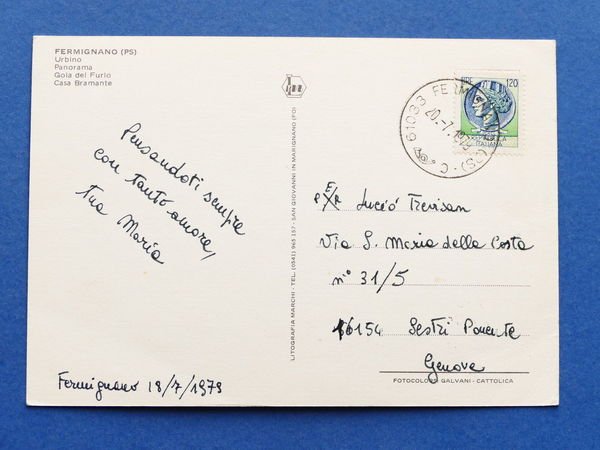 FERMIGNANO (PS)
Urbino
Panorama
Gola del Furlo
Casa Bramante
LIRE 120
ITALIANA
61033 FERM
20.-7.19
(PS) - C.
Pensandoti sempre
con tanto amore,
tua Maria
Fermignano 18/7/1979
LITOGRAFIA MARCHI - TEL. (0541) 965 157 - SAN GIOVANNI IN MARIGNANO (FO)
Lucio Trevisan
Via S. Maria della Costa
n° 31/5
16154 Sestri Ponente
Genova
FOTOCOLOR GALVANI - CATTOLICA